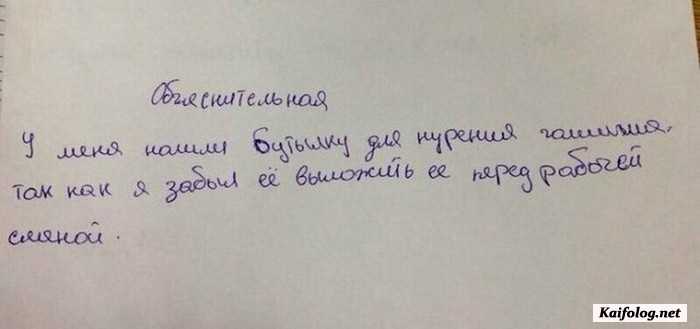 Объяснительная
У меня нашли Бутылку для курения гашиша,
так как я забыл её выложить ее перед рабочей
сменой.
Kaifolog.net